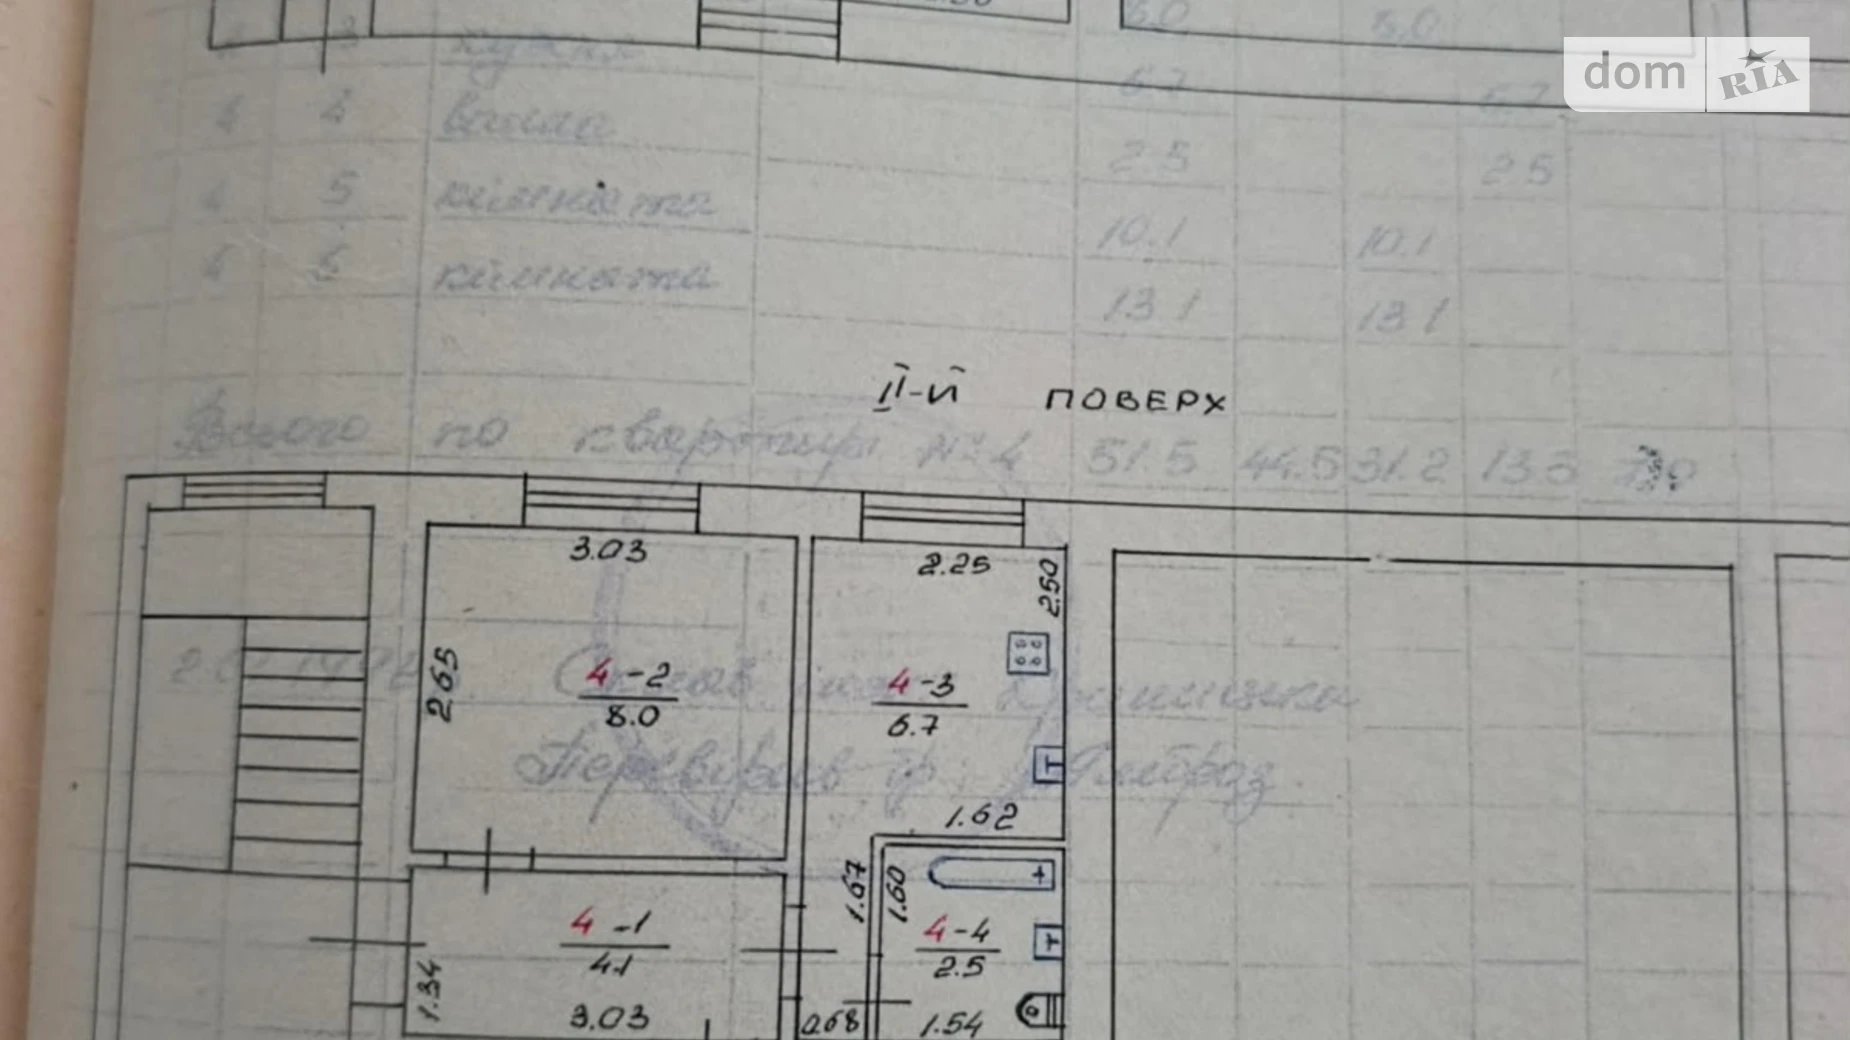 dom RIA
8.0 8.0
3 кухня 6.7 6.7
4 4 ванна 2.5 2.5
4 5 кімната 10.1 10.1
4 6 кімната 13.1 13.1
ІІ-й ПОВЕРХ
Всього по квартирі № 4 51.5 44.5 31.2 13.3
3.03
2.25
2.50
2.65
4-2
8.0
4-3
6.7
Перевірив
Т
1.62
1.67
1.60
4-1
4.1
4-4
2.5
Т
1.34
3.03
0.68
1.54